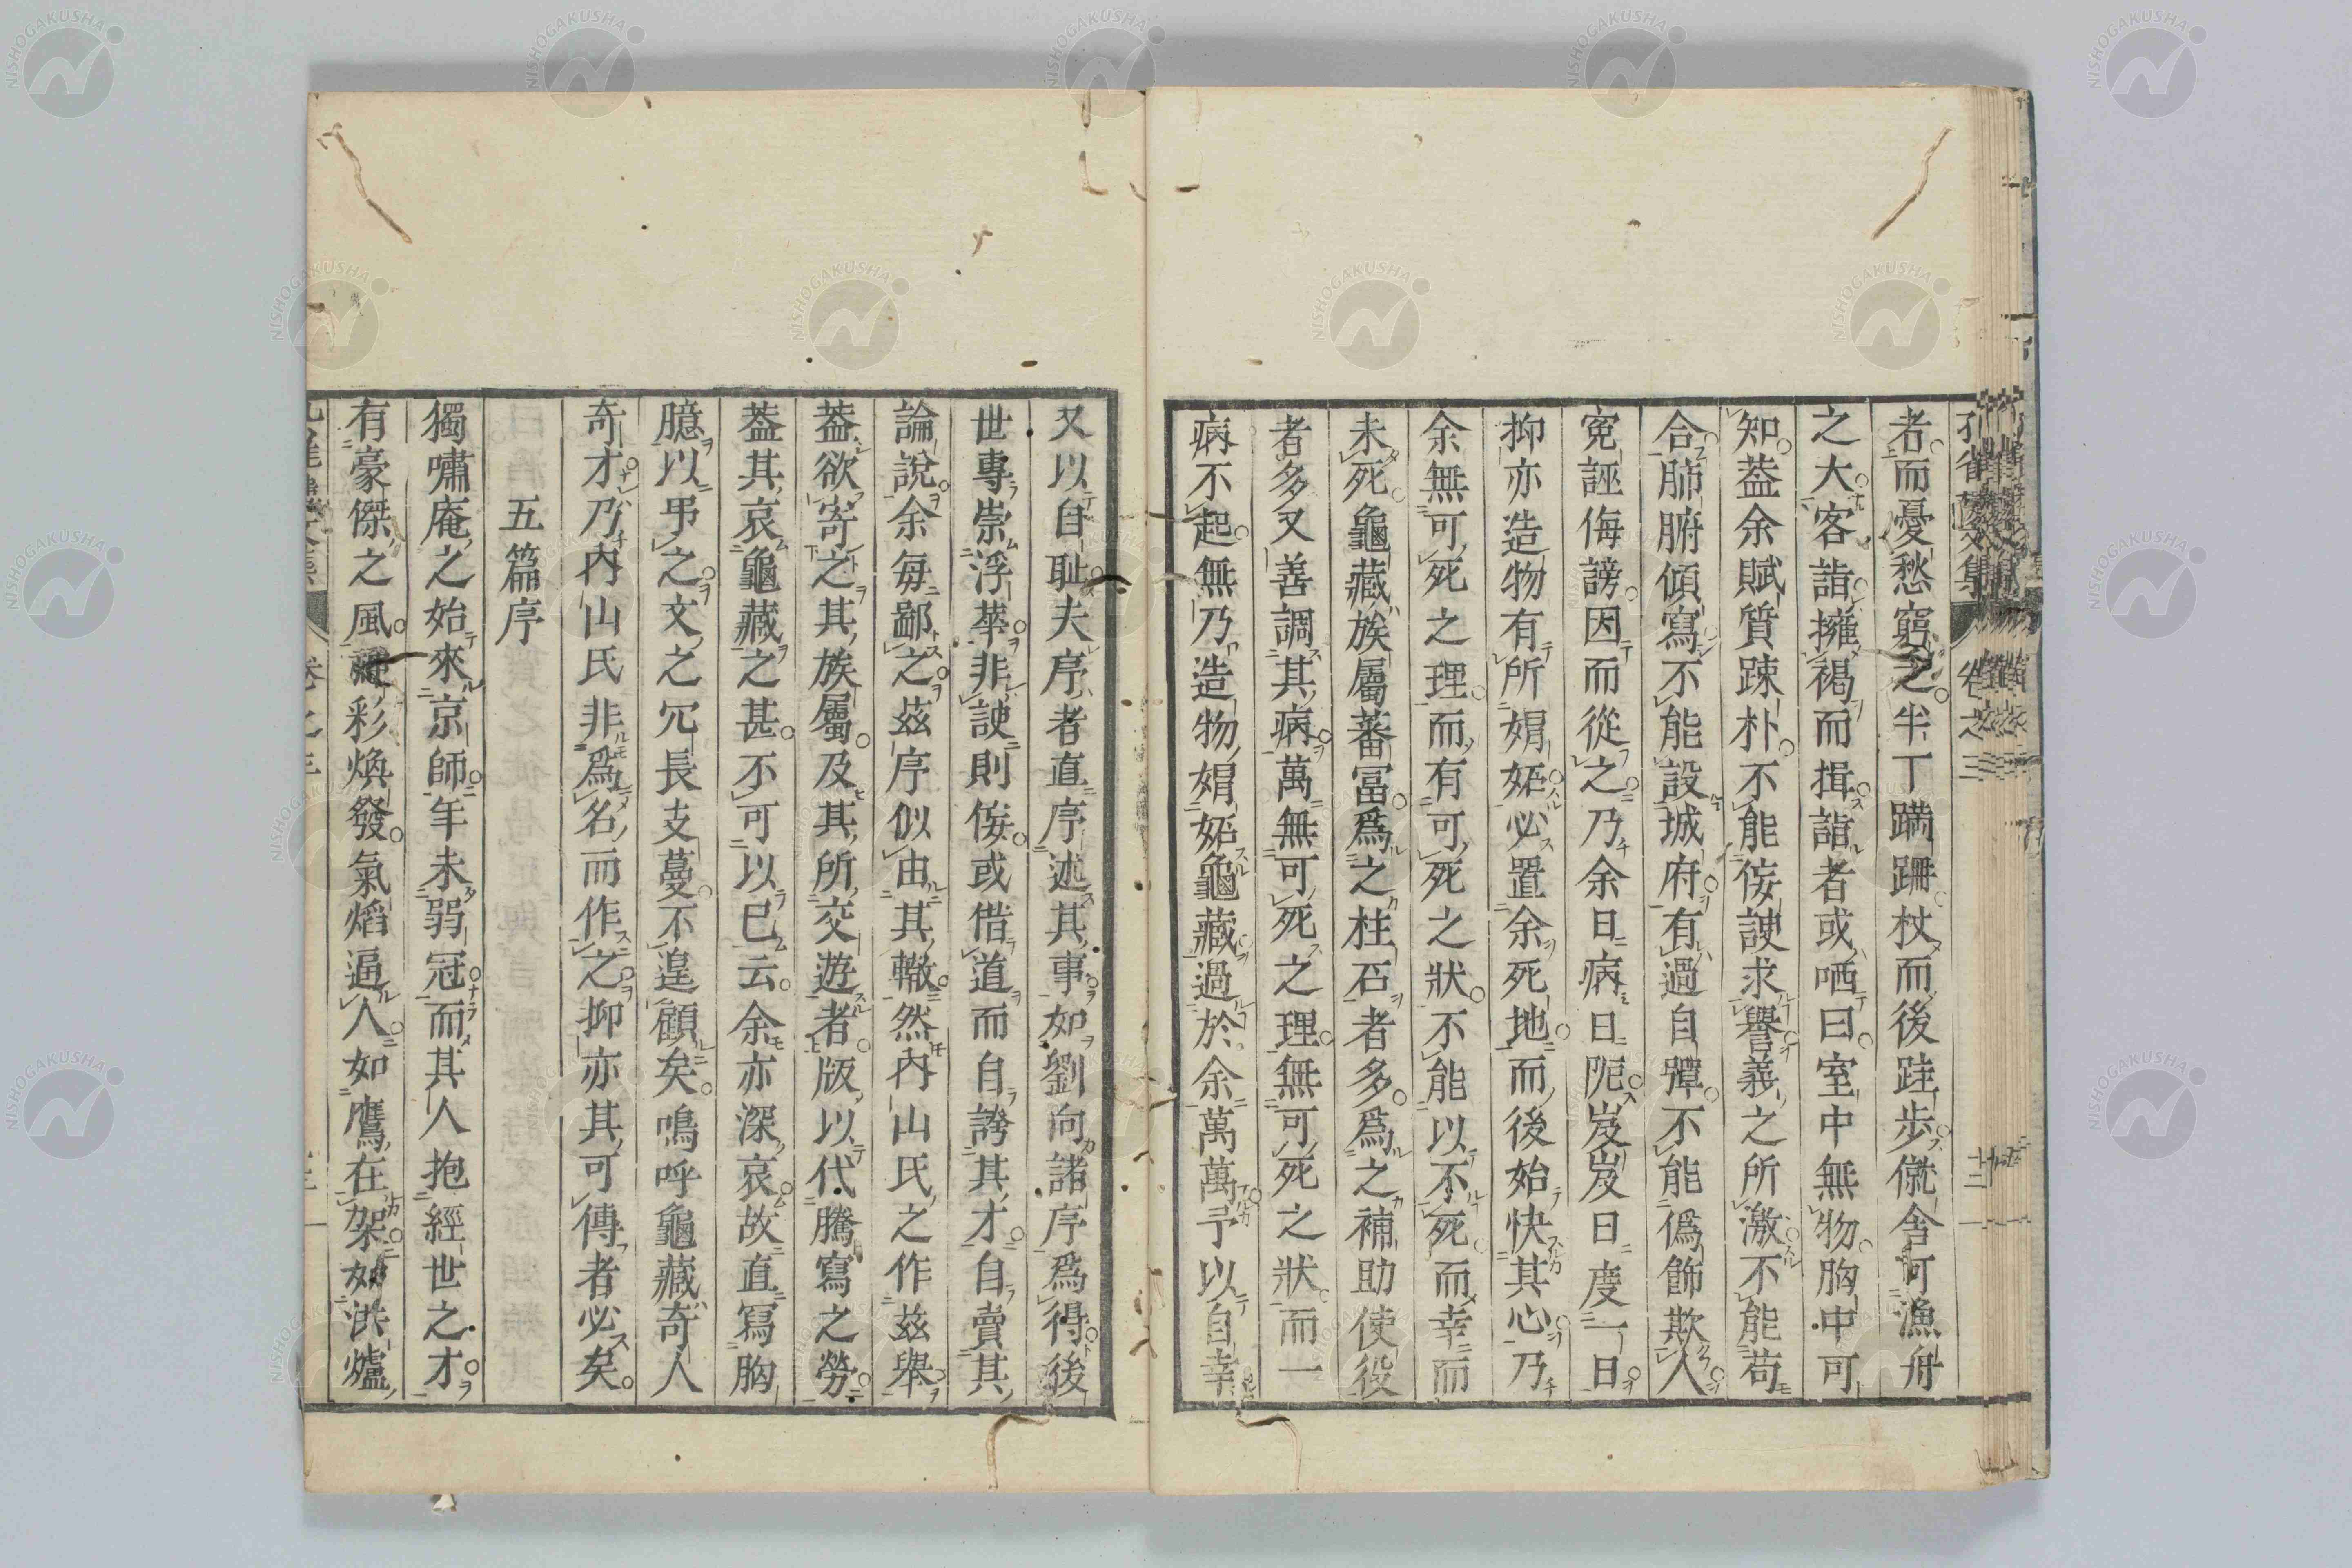 者而憂愁窮之半丁蹣跚杖而後跬步僦舍可漁舟
之大客詣擁褐而揖詣者或哂曰室中無物胸中可
知葢余賦質踈朴不能侫諛求譽義之所激不能苟
合肺腑傾寫不能設城府有過自殫不能僞飾欺人
寃誣侮謗因而從之乃余日病日阨岌岌日度一日
抑亦造物有所娟妬必置余死地而後始快其心乃
余無可死之理而有可死之狀不能以不死而幸而
未死龜藏族屬蕃富爲之柱石者多爲之補助使役
者多又善調其病萬無可死之理無可死之狀而一
病不起無乃造物娟妬龜藏過於余萬萬乎以自幸
又以自耻夫序者直序述其事如劉向諸序爲得後
世專崇浮華非諛則侫或借道而自誇其才自賣其
論說余每鄙之茲序似由其轍然內山氏之作茲舉
葢欲寄之其族屬及其所交遊者版以代騰寫之勞
葢其哀龜藏之甚不可以已云余亦深哀故直寫胸
臆以弔之文之冗長支蔓不遑顧矣嗚呼龜藏奇人
奇才乃內山氏非爲名而作之抑亦其可傳者必矣
五篇序
獨嘯庵之始來京師年未弱冠而其人抱經世之才
有豪傑之風神彩煥發氣焰逼人如鷹在架如洪爐